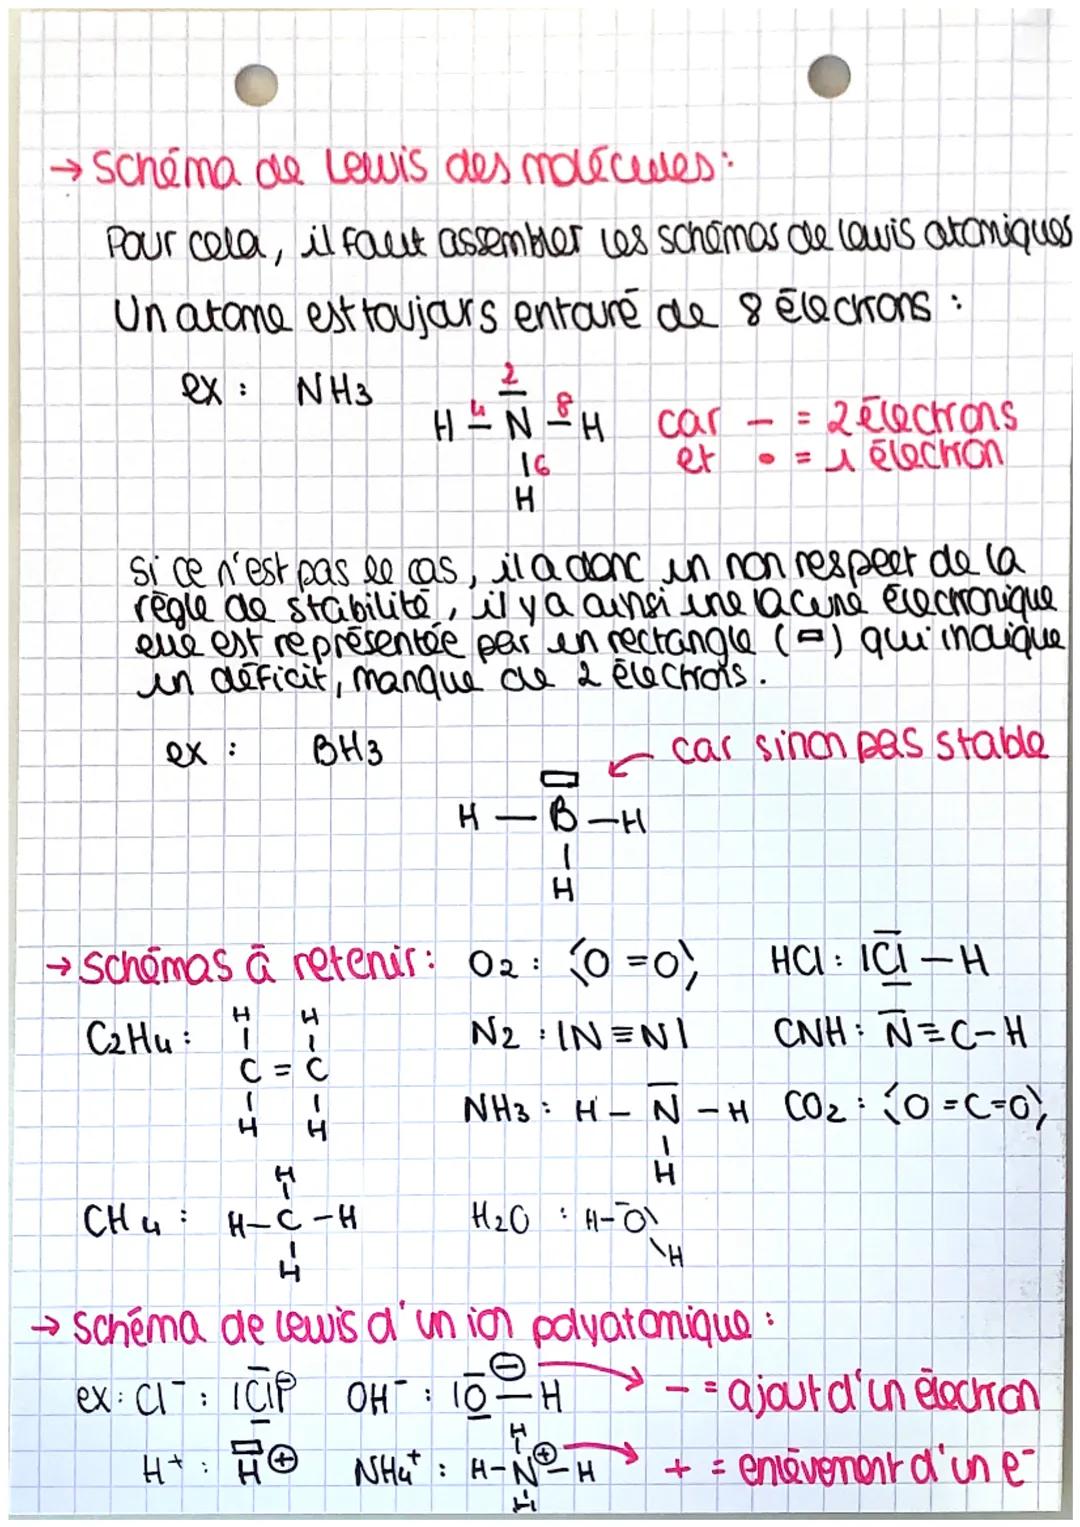 → Schéma de Lewis des molécules :
Pour cela, il faut assembler les schémas de lewis atomiques
Un atome est toujours entouré de 8 élechons :
ex : NH3
2
H 4 N 8 H
16
H
car — = 2 électrons
et • = 1 électron
Si ce n'est pas le cas, il a donc un non respect de la
règle de stabilité, il y a ainsi une lacune électronique
elle est représentée par un rectangle (▭) qui indique
un déficit, manque de 2 électrons.
ex : BH3
car sinon pas stable
H — B — H
|
H
→ schémas à retenir : O2 : ⟨O = O⟩ HCl : |Cl — H
C2H4 :
H H
| |
C = C
| |
H H
N2 : |N ≡ N| CNH : N ≡ C - H
NH3 : H - N - H CO2 : ⟨O = C = O⟩
|
H
CH4 :
H
|
H - C - H
|
H
H2O : H - O\
\H
→ Schéma de lewis d'un ion polyatomique :
ex : Cl⁻ : |Cl|⊖ OH⁻ : |O⊖ — H → - = ajout d'un électron
H⁺ : H⊕ NH4⁺ : H - N⊕ - H → + = enlèvement d'un e⁻
H
H